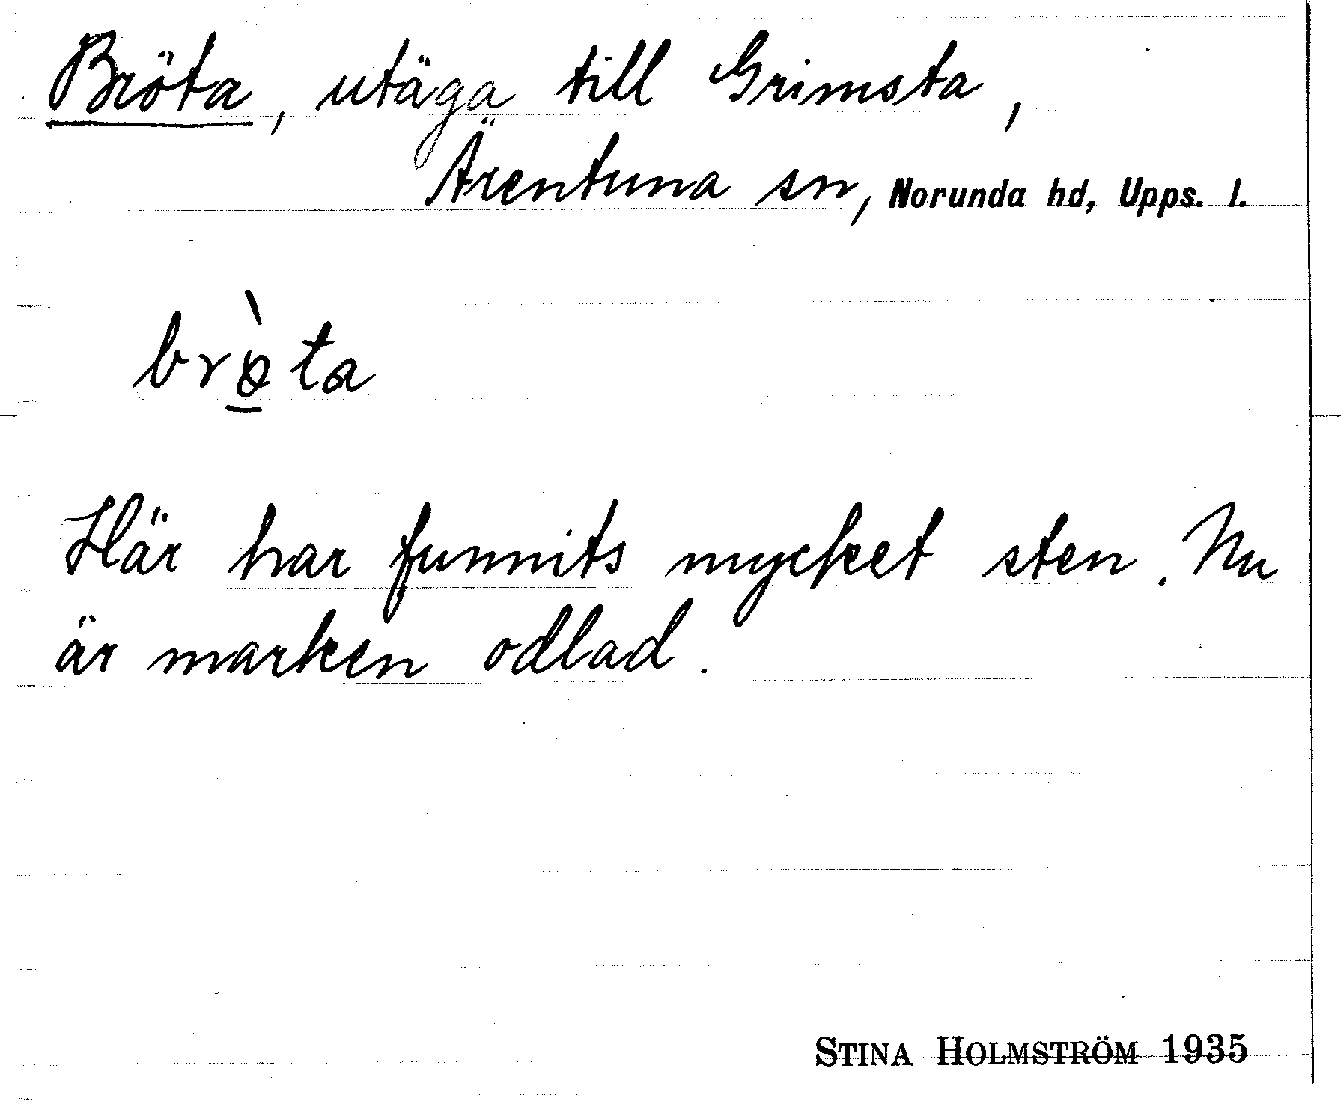 Bröta, utäga till Grimsta,
Ärentuna sn, Norunda hd, Upps. l.
brò̱ta
Här har funnits mycket sten. Nu
är marken odlad.
STINA HOLMSTRÖM 1935